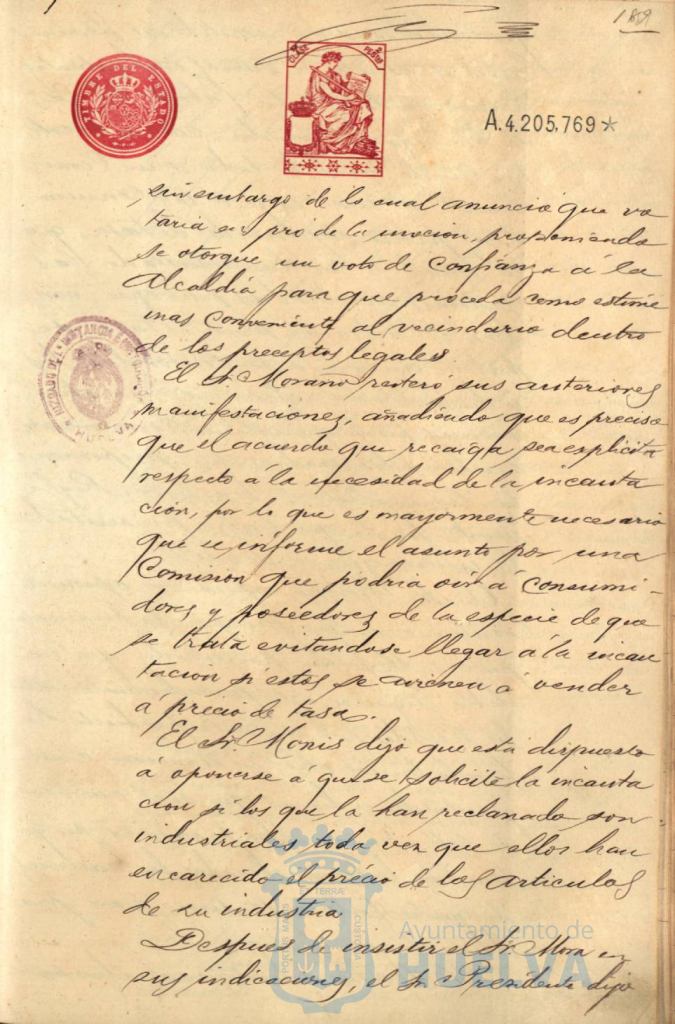 1859
TIMBRE DEL ESTADO
CLASE
A.4.205,769*
sin embargo de lo cual anuncia que vo
taria en pró de la mocion, proponiendo
se otorgue un voto de Confianza á la
Alcaldía para que proceda como estime
mas conveniente al vecindario dentro
de los preceptos legales.
El Sr. Morano reiteró sus anteriores
manifestaciones, añadiendo que es preciso
que el acuerdo que recaiga, sea explicita
respecto á la necesidad de la incauta
ción, por lo que es mayormente necesario
que se informe el asunto por una
Comision que podria oir á consumi-
dores y poseedores de la especie de que
se trata evitandose llegar á la incau
tacion si estos se avienen á vender
á precio de tasa.
El Sr. Monis dijo que está dispuesto
á oponerse á que se solicite la incauta
cion si los que la han reclamado son
industriales toda vez que ellos han
encarecido el précio de los articulos
de su industria
Despues de insistir el Sr. Mora en
sus indicaciones, el Sr. Presidente dijo
JUZGADO DE 1ª INSTANCIA E
HUELVA
PORTUS MARIS ET TERRAE CUSTODIA
Ayuntamiento de
HUELVA